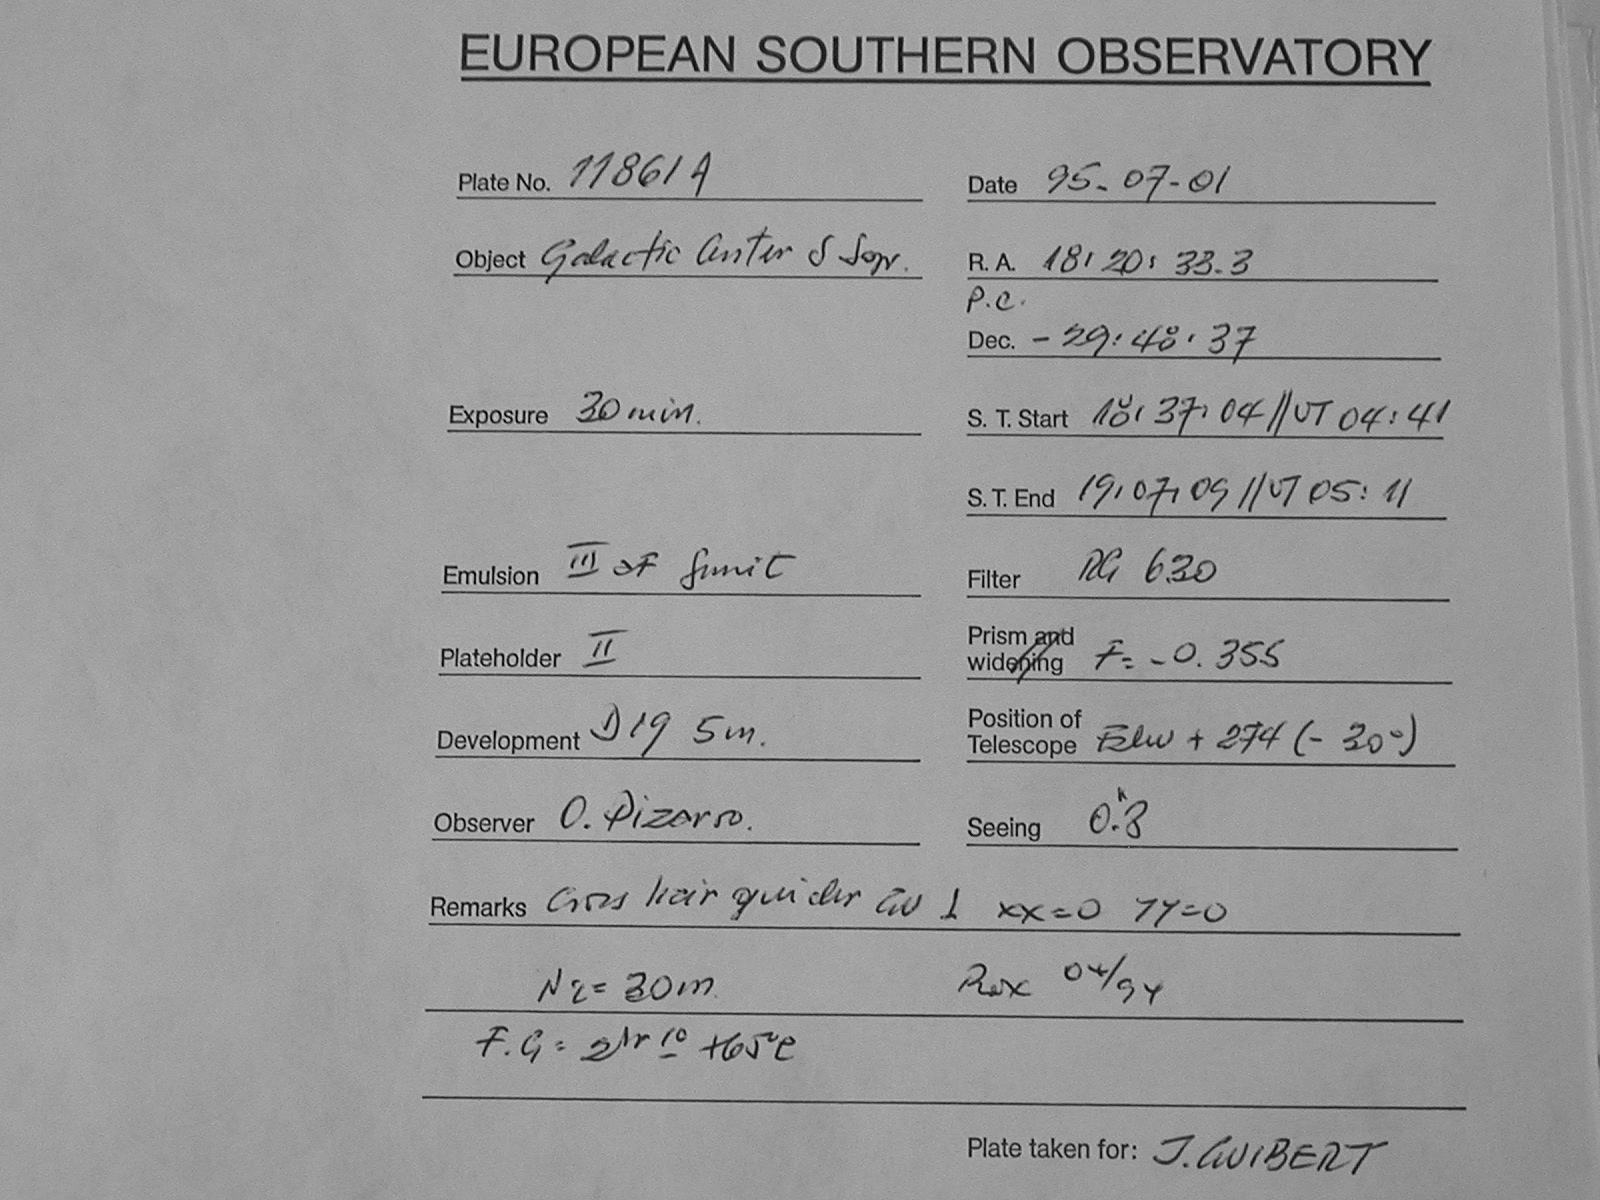 EUROPEAN SOUTHERN OBSERVATORY
Plate No. 11861A
Date 95-07-01
Object Galactic Center &
R. A. 18: 20: 33.3
P.C.
Dec. - 29: 48: 37
Exposure 30 min.
S. T. Start 18: 37: 04 // UT 04: 41
S. T. End 19: 07: 09 // UT 05: 11
Emulsion III aF
Filter RG 630
Plateholder II
Prism and widening F= -0.355
Development D19 5m.
Position of Telescope + 274 (- 30°)
Observer O. Pizarro.
Seeing 0.8
Remarks Cross hair guider xx=0 yy=0
N2= 30m
F.G= 2hr 10 +65°C
Plate taken for: J. GUIBERT